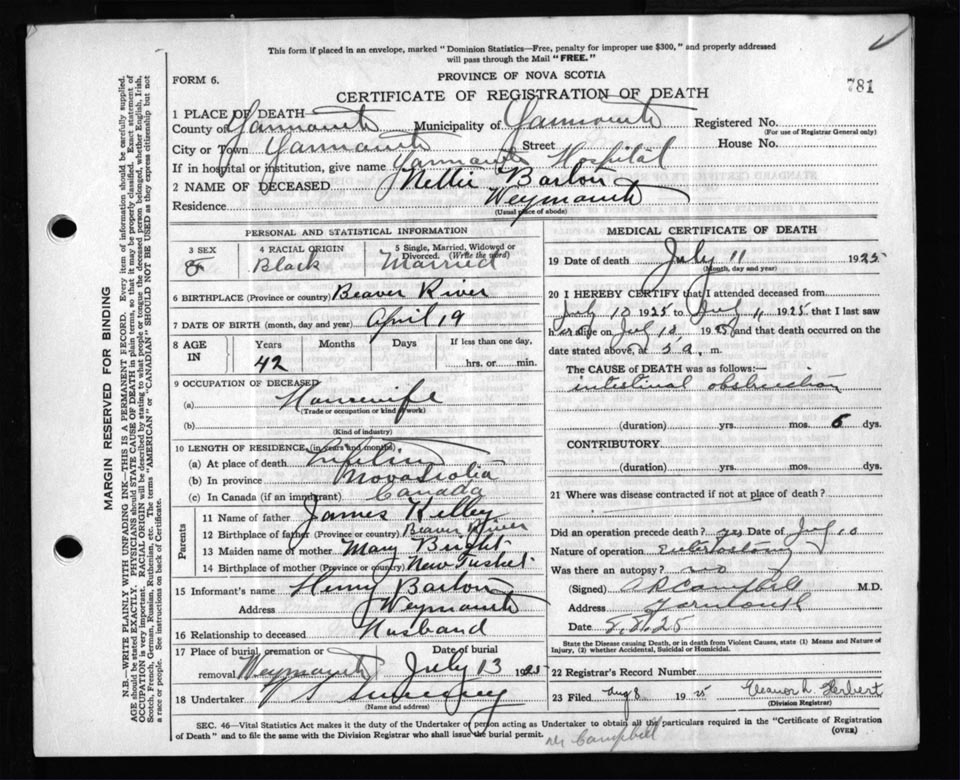 This form if placed in an envelope, marked "Dominion Statistics—Free, penalty for improper use $300," and properly addressed
will pass through the Mail "FREE."
FORM 6.
PROVINCE OF NOVA SCOTIA
781
CERTIFICATE OF REGISTRATION OF DEATH
1 PLACE OF DEATH
County of Yarmouth Municipality of Yarmouth Registered No.
(For use of Registrar General only)
City or Town Yarmouth Street House No.
If in hospital or institution, give name Yarmouth Hospital
2 NAME OF DECEASED Nellie Barton
Residence Weymouth
(Usual place of abode)
PERSONAL AND STATISTICAL INFORMATION
3 SEX 4 RACIAL ORIGIN 5 Single, Married, Widowed or Divorced. (Write the word)
F Black Married
6 BIRTHPLACE (Province or country) Beaver River
7 DATE OF BIRTH (month, day and year) April 19
8 AGE IN Years Months Days If less than one day,
42 hrs. or min.
9 OCCUPATION OF DECEASED
(a) Housewife
(Trade or occupation or kind of work)
(b)
(Kind of industry)
10 LENGTH OF RESIDENCE (in years and months)
(a) At place of death Lifetime
(b) In province Nova Scotia
(c) In Canada (if an immigrant) Canada
Parents
11 Name of father James Kelley
12 Birthplace of father (Province or country) Beaver River
13 Maiden name of mother Mary Bright
14 Birthplace of mother (Province or country) New Tusket
15 Informant's name Henry Barton
Address Weymouth
16 Relationship to deceased Husband
17 Place of burial, cremation or removal Date of burial
Weymouth July 13 1925
18 Undertaker V S Sweeney
(Name and address)
MEDICAL CERTIFICATE OF DEATH
19 Date of death July 11 1925
(Month, day and year)
20 I HEREBY CERTIFY that I attended deceased from
July 10 1925 to July 11 1925 that I last saw
h er alive on July 10 1925 and that death occurred on
date stated above, at 5 a. m.
The CAUSE of DEATH was as follows:—
intestinal obstruction
(duration) yrs. mos. 6 dys.
CONTRIBUTORY
(duration) yrs. mos. dys.
21 Where was disease contracted if not at place of death?
Did an operation precede death? yes Date of July 10
Nature of operation Enterostomy
Was there an autopsy? no
(Signed) Campbell M.D.
Address Yarmouth
Date
State the Disease causing Death, or in death from Violent Causes, state (1) Means and Nature of
Injury, (2) whether Accidental, Suicidal or Homicidal.
22 Registrar's Record Number
23 Filed Aug 8 1925 Eleanor L. Herbert
(Division Registrar)
SEC. 46—Vital Statistics Act makes it the duty of the Undertaker or person acting as Undertaker to obtain all the particulars required in the "Certificate of Registration
of Death" and to file the same with the Division Registrar who shall issue the burial permit.
(OVER)
Campbell
MARGIN RESERVED FOR BINDING
N.B.—WRITE PLAINLY WITH UNFADING INK—THIS IS A PERMANENT RECORD. Every item of information should be carefully supplied.
AGE should be stated EXACTLY. PHYSICIANS should STATE CAUSE OF DEATH in plain terms, so that it may be properly classified. Exact statement of
OCCUPATION is very important. RACIAL ORIGIN will be described by stating to what people or tongue the deceased person belonged, whether English, Irish,
Scotch, French, German, Russian, Ruthenian, etc. The terms "AMERICAN" or "CANADIAN" SHOULD NOT BE USED as they express citizenship but not
a race or people. See instructions on back of Certificate.